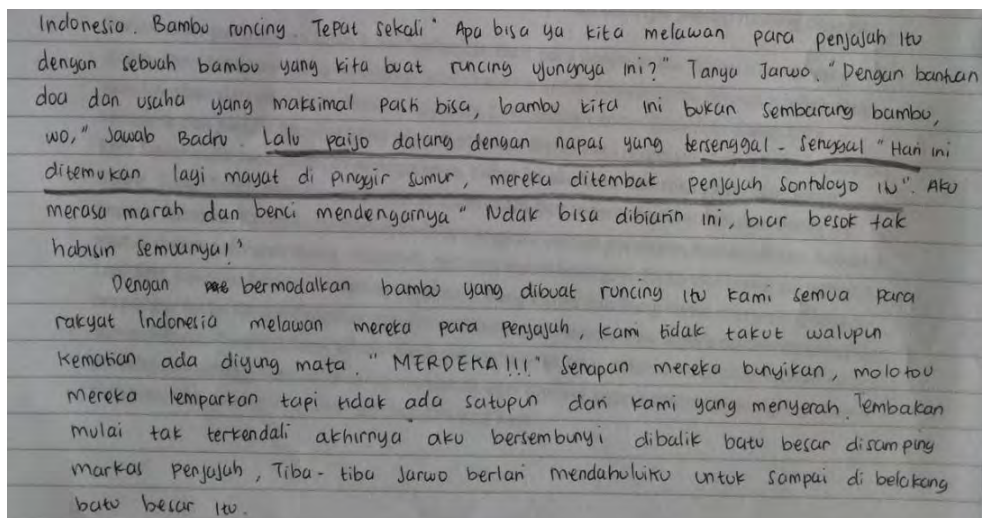 Indonesia. Bambu runcing. Tepat sekali " Apa bisa ya kita melawan para penjajah itu
dengan sebuah bambu yang kita buat runcing ujungnya ini?" Tanya Jarwo. "Dengan bantuan
doa dan usaha yang maksimal pasti bisa, bambu kita ini bukan sembarang bambu,
wo," Jawab Badru. Lalu paijo datang dengan napas yang tersenggal - senggal "Hari ini
ditemukan lagi mayat di pinggir sumur, mereka ditembak penjajah Sontoloyo itu". Aku
merasa marah dan benci mendengarnya " Ndak bisa dibiarin ini, biar besok tak
habisin semuanya!"
Dengan bermodalkan bambu yang dibuat runcing itu kami semua para
rakyat Indonesia melawan mereka para penjajah, kami tidak takut walupun
kematian ada diujung mata. "MERDEKA!!!" Senapan mereka bunyikan, molotov
mereka lemparkan tapi tidak ada satupun dari kami yang menyerah. Tembakan
mulai tak terkendali akhirnya aku bersembunyi dibalik batu besar disamping
markas penjajah, Tiba-tiba Jarwo berlari mendahuluiku untuk sampai di belakang
batu besar itu.